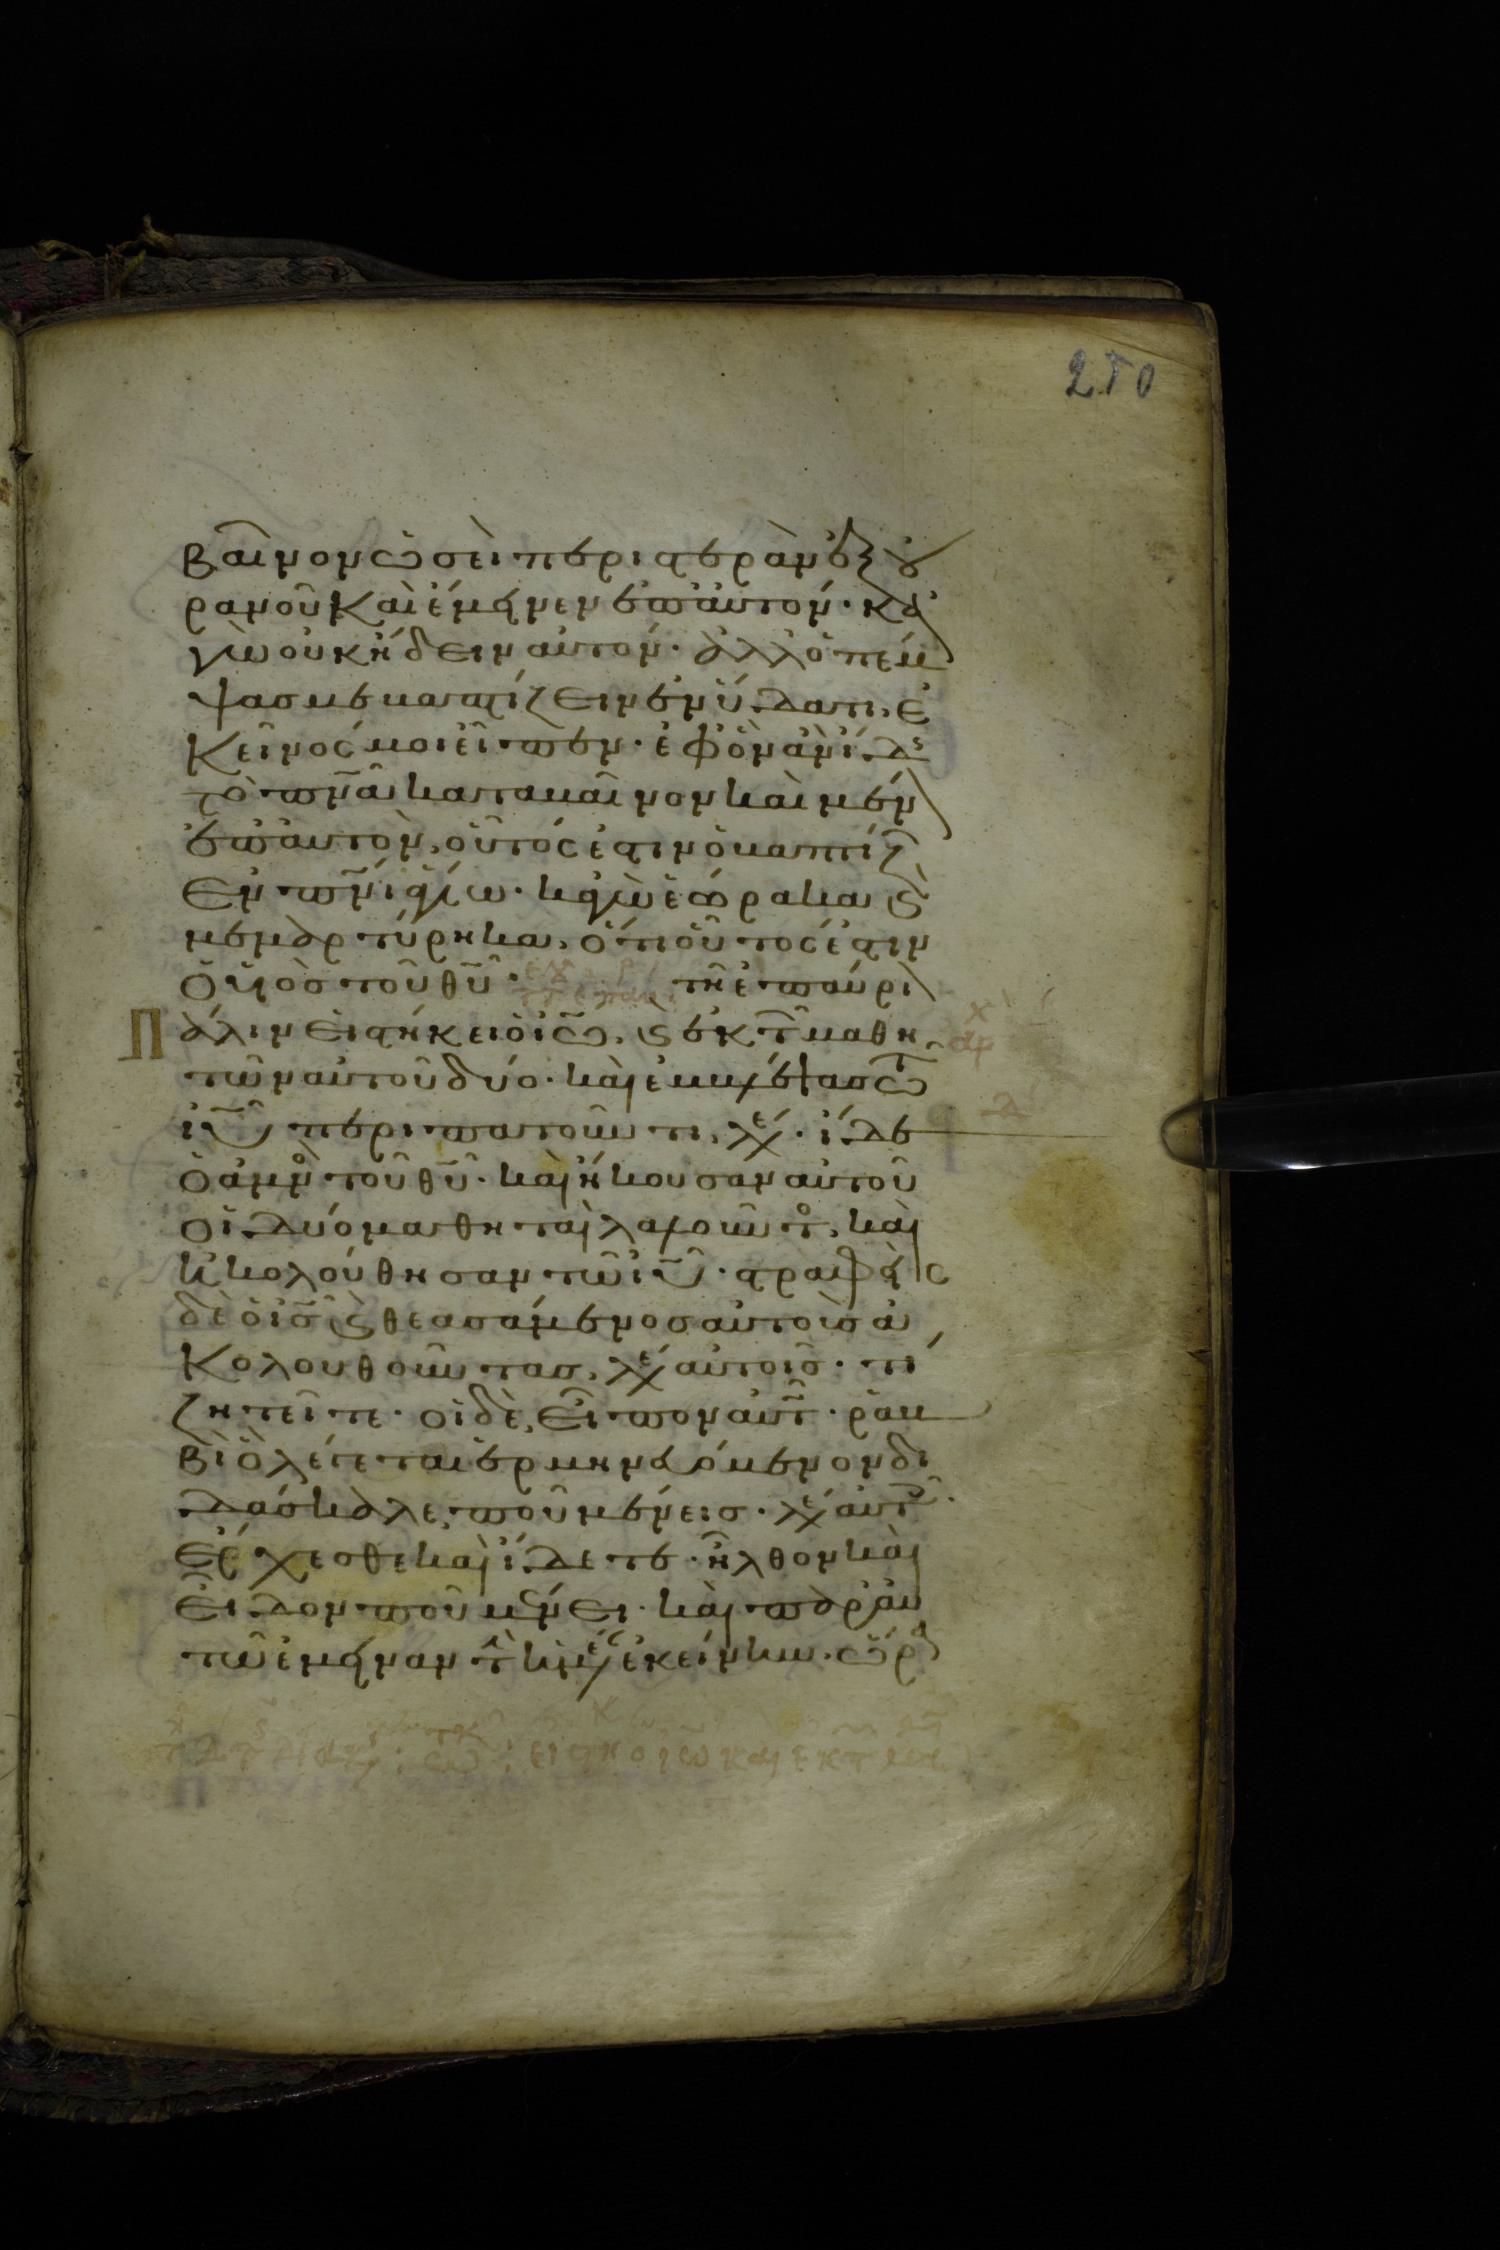 250
βαῖνον ὡσεὶ περιστερὰν ἐξ οὐ
ρανοῦ καὶ ἔμεινεν ἐπ' αὐτόν· κα
γὼ οὐκ ἤδειν αὐτόν· ἀλλ' ὁ πέμ
ψας με βαπτίζειν ἐν ὕδατι, ἐ
κεῖνός μοι εἶπεν· ἐφ' ὃν ἂν ἴδῃς
τὸ πνᾶ καταβαῖνον καὶ μένον
ἐπ' αὐτὸν, οὗτός ἐστιν ὁ βαπτίζων
ἐν πνι ἁγίω· καγὼ ἑώρακα καὶ
μεμαρτύρηκα, ὅτι οὗτος ἐστιν
ὁ υἱὸς τοῦ θυ· τῆ ἐπαύριον
Πάλιν εἱστήκει ὁ ιω, καὶ ἐκ τῶν μαθη
τῶν αὐτοῦ δύο· καὶ ἐμβλέψας τῶ
ιυ περιπατοῦντι, λέγει· ἴδε
ὁ ἀμνὸς τοῦ θυ· καὶ ἤκουσαν αὐτοῦ
οἱ δύο μαθηταὶ λαλοῦντος, καὶ
ἠκολούθησαν τῶ ιυ· στραφεὶς
δὲ ὁ ις καὶ θεασάμενος αὐτοὺς ἀ
κολουθοῦντας, λέγει αὐτοῖς· τί
ζητεῖτε· οἱ δὲ, εἶπον αὐτῶ· ραβ
βὶ ὃ λέγεται ἑρμηνευόμενον δι
δάσκαλε, ποῦ μένεις· λέγει αὐτοῖς·
ἔρχεσθε καὶ ἴδετε· ἦλθον καὶ
εἶδον ποῦ μένει· καὶ παρ' αὐ
τῶ ἔμειναν τὴν ἡμέραν ἐκείνην· ὥρα